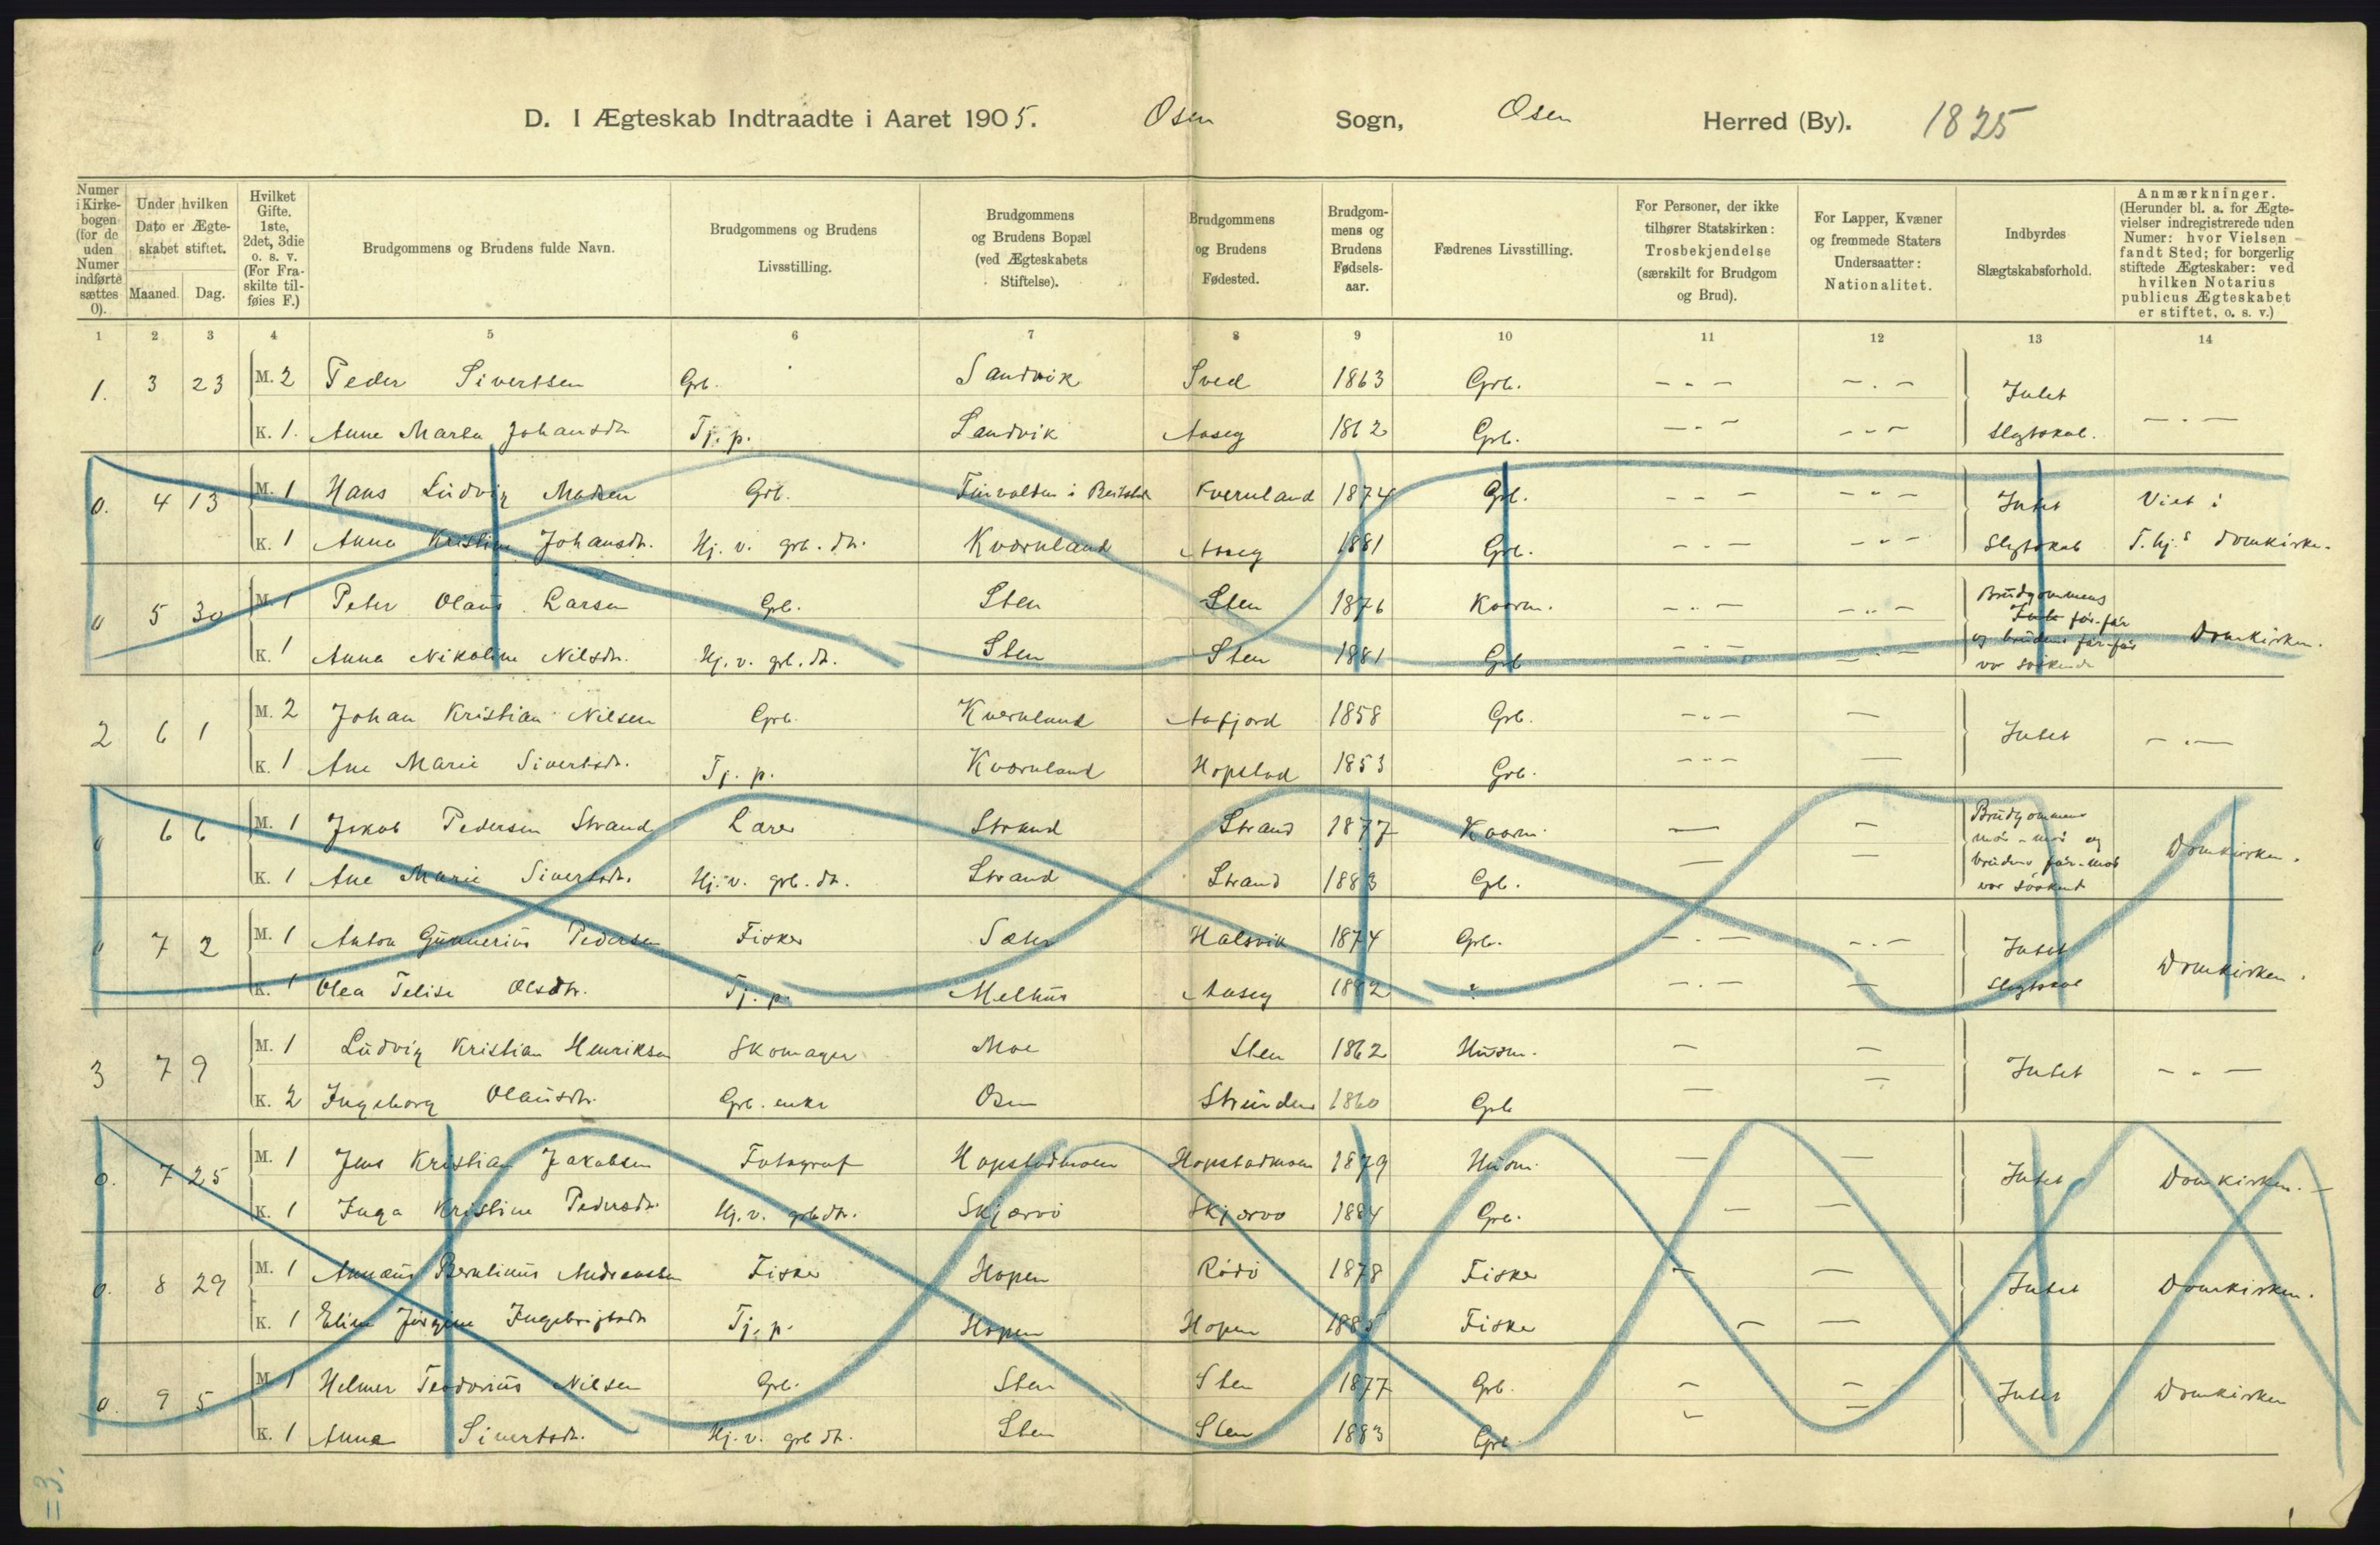 D. I Ægteskab Indtraadte i Aaret 1905. Osen Sogn, Osen Herred (By). 1825
Numer i Kirkebogen (for de uden Numer indførte sættes 0).
Under hvilken Dato er Ægteskabet stiftet.
Maaned. Dag.
Hvilket Gifte. 1ste, 2det, 3die o. s. v. (For Fraskilte tilføies F.)
Brudgommens og Brudens fulde Navn.
Brudgommens og Brudens Livsstilling.
Brudgommens og Brudens Bopæl (ved Ægteskabets Stiftelse).
Brudgommens og Brudens Fødested.
Brudgommens og Brudens Fødselsaar.
Fædrenes Livsstilling.
For Personer, der ikke tilhører Statskirken: Trosbekjendelse (særskilt for Brudgom og Brud).
For Lapper, Kvæner og fremmede Staters Undersaatter: Nationalitet.
Indbyrdes Slægtskabsforhold.
Anmærkninger. (Herunder bl. a. for Ægtevielser indregistrerede uden Numer: hvor Vielsen fandt Sted; for borgerlig stiftede Ægteskaber: ved hvilken Notarius publicus Ægteskabet er stiftet, o. s. v.)
1 2 3 4 5 6 7 8 9 10 11 12 13 14
1. 3 23 M. 2 Peder Sivertsen Grb. Sandvik Sved 1863 Grb. - - - - . - Intet
K. 1. Anne Marta Johansdtr Tj. p. Sandvik Aaseg 1862 Grb. - . - - - - Slegtskab. - . -
0. 4 13 M. 1 Hans Ludvig Madsen Grb. i Kvernland 1874 Grb. - - - - - - Intet Viet i
K. 1 Anna Kristine Johansdtr. Hj. v. grb. dtr. Kværnland Aaseg 1881 Grb. - . - - - - Slegtskab T.hj.s domkirke.
0 5 30 M. 1 Peter Olaus Larsen Grb. Sten Sten 1876 Kaarm. - . - - . - Brudgommens far-far
K. 1 Anna Nikoline Nilsdtr. Hj. v. grb. dtr. Sten Sten 1881 Grb - . - - . - og brudens far-far var søskende Domkirken.
2 6 1 M. 2 Johan Kristian Nilsen Grb. Kvernland Aafjord 1858 Grb. - . - - Intet - . -
K. 1 Ane Marie Sivertsdtr. Tj. p. Kværnland Hopstad 1853 Grb. - - - -
0 6 6 M. 1 Jakob Pedersen Strand Lærer Strand Strand 1877 Kaarm. - - Brudgommens mor-mor og
K. 1 Ane Marie Sivertsdtr. Hj. v. grb. dtr. Strand Strand 1883 Grb. - - brudens far-mor var søskend Domkirken.
0 7 2 M. 1 Anton Gunnerius Pedersen Fisker Sæter Halsvik 1874 Grb. - . - - . - Intet
K. 1 Olea Felise Olsdtr. Tj. p. Melhus Aaseg 1882 " - . - - Slegtskab Domkirken.
3 7 9 M. 1 Ludvig Kristian Henriksen Skomager Moe Sten 1862 Husm. - - Intet - . -
K. 2 Ingeborg Olausdtr. Grb. enke Osen Strinden 1860 Grb - -
0. 7 25 M. 1 Jens Kristian Jakobsen Fotograf Hopstadmoen Hopstadmoen 1879 Husm. - - Intet Domkirken. -
K. 1 Inga Kristine Pedersdtr. Hj. v. grb dtr. Skjærvø Skjærvø 1884 Grb. - -
0. 8 29 M. 1 Annæus Berntinus Andreassen Fisker Hopen Rödö 1878 Fisker - - Intet Domkirken.
K. 1 Eline Jörgine Ingebrigtsdtr Tj. p. Hopen Hopen 1885 Fisker - -
0. 9 5 M. 1 Helmer Teodorius Nilsen Grb. Sten Sten 1877 Grb. - - Intet Domkirken
K. 1 Anna Sivertsdtr. Hj. v. grb dtr. Sten Sten 1883 Grb. - -
=3.